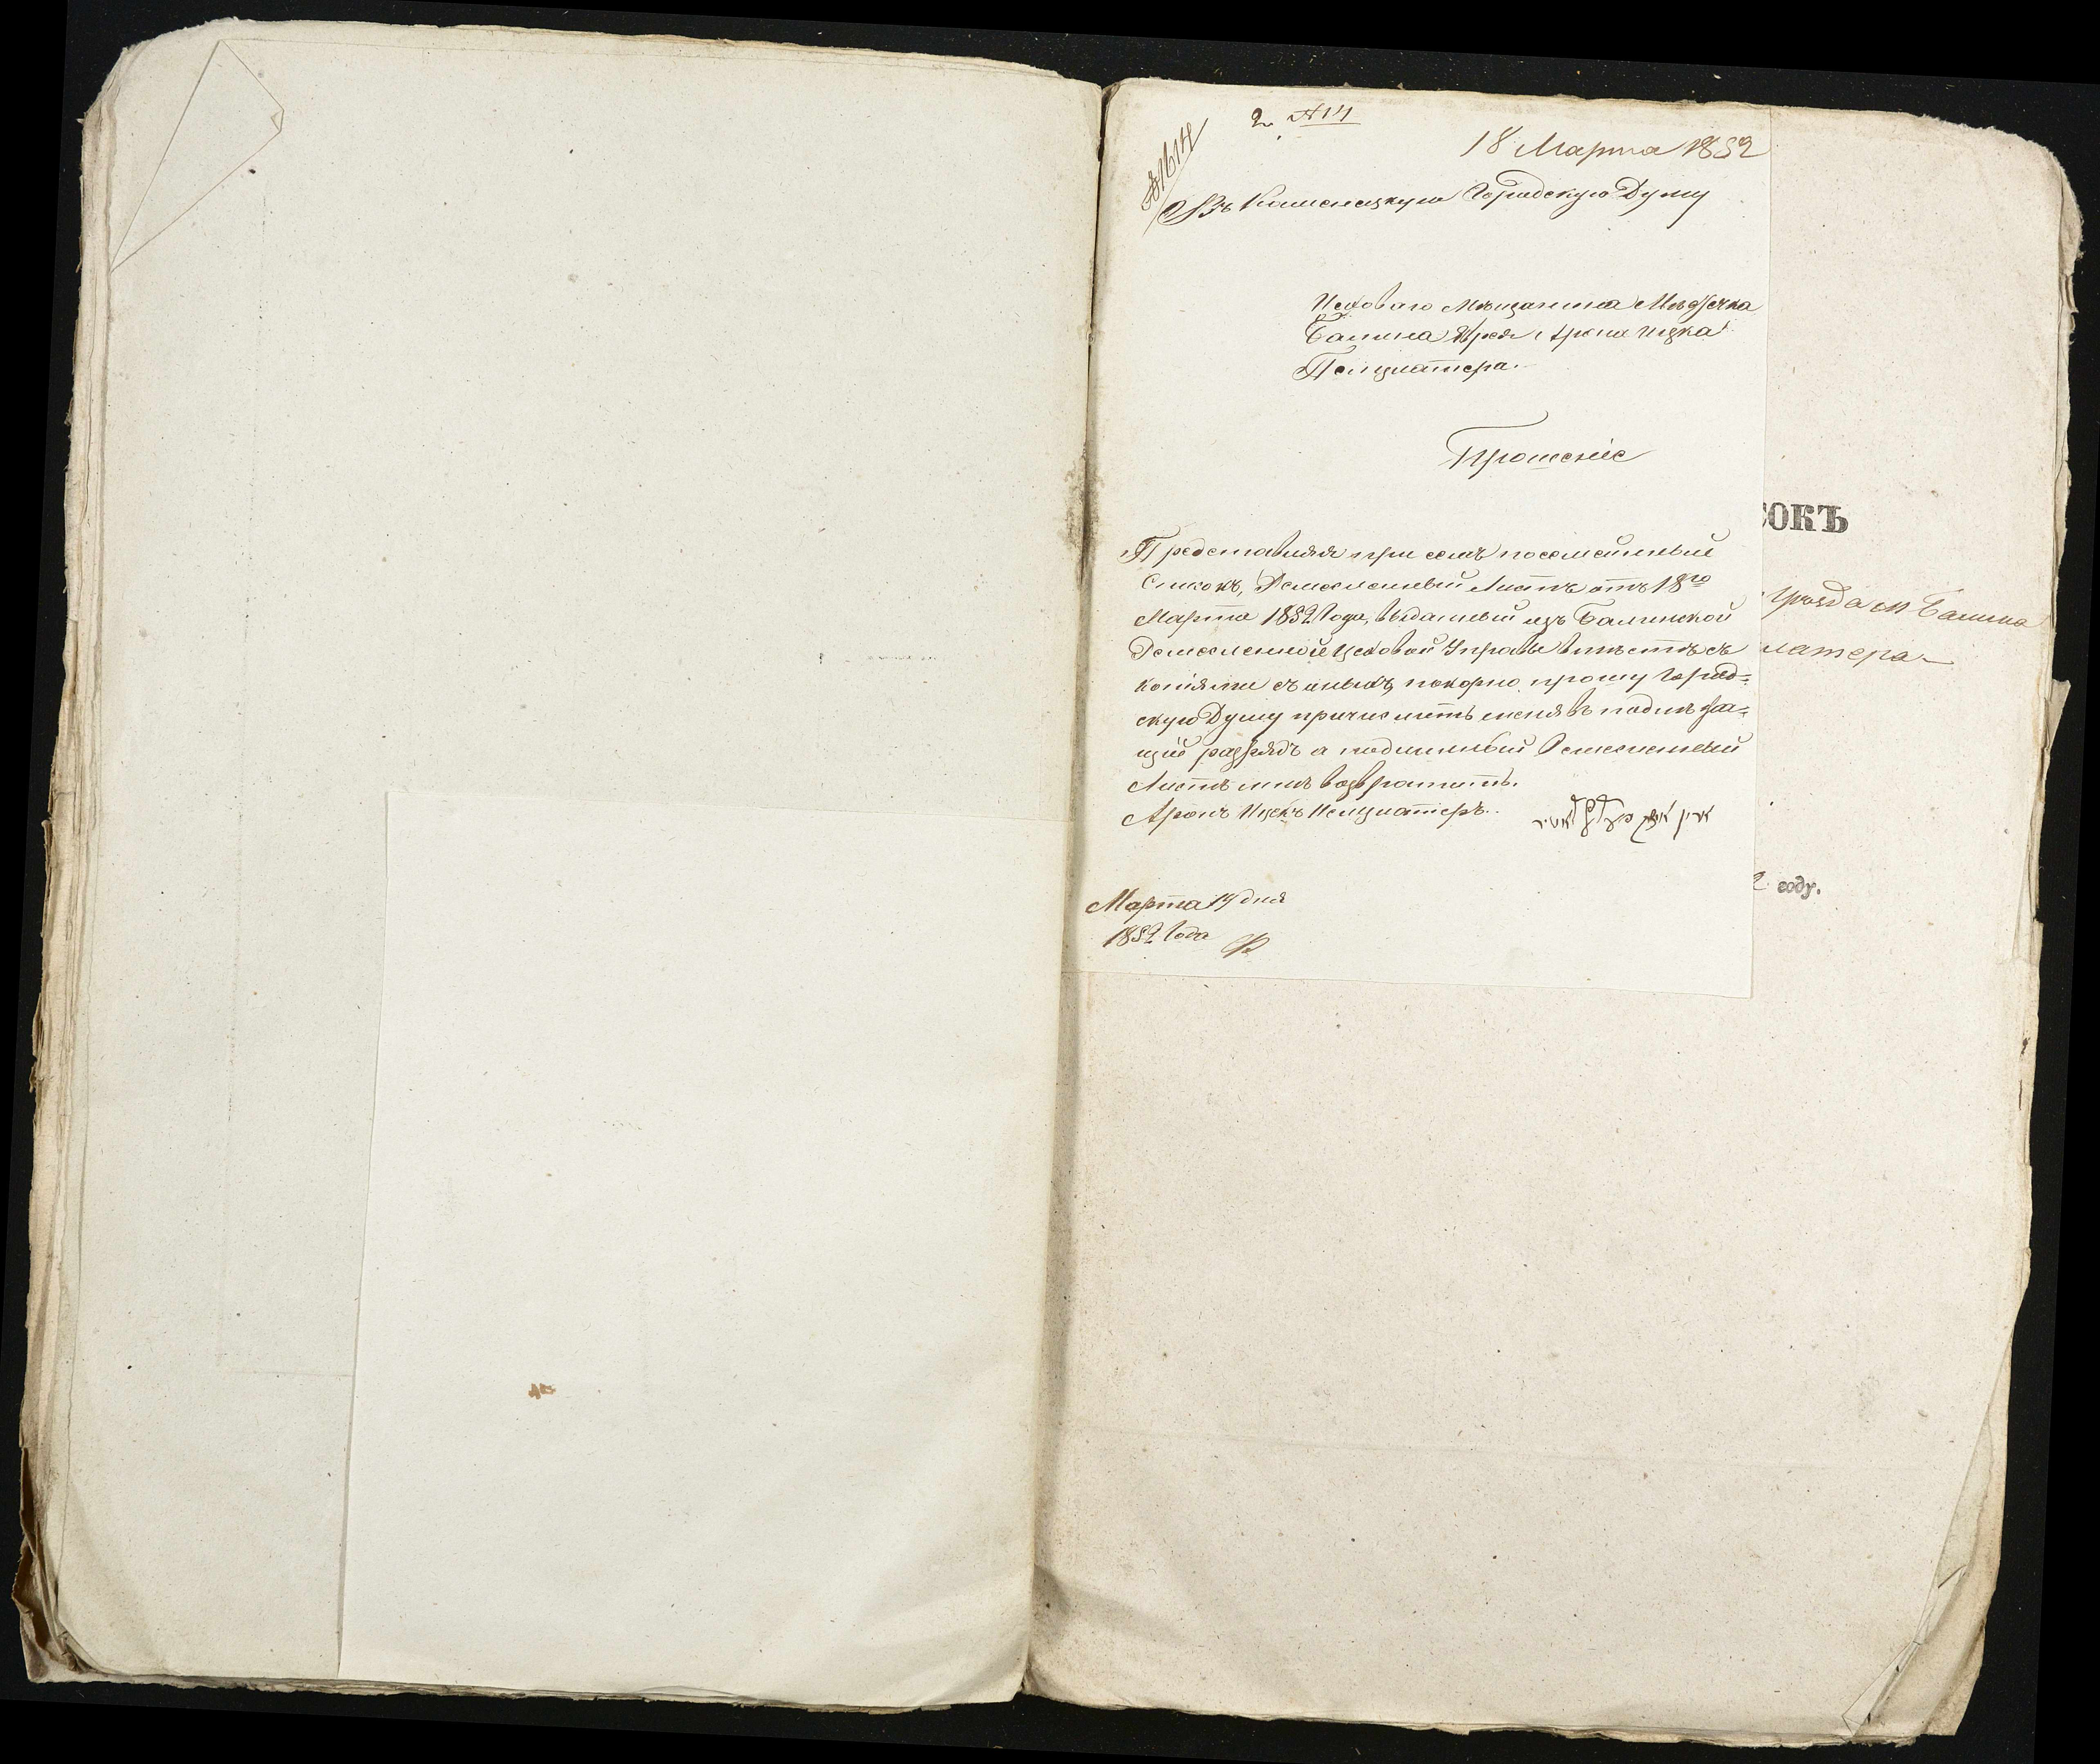 2. №14
№1614
18 Марта 1852
Въ Каменецкую Городскую Думу
Цеховаго Мѣщанина Мѣстечка
Балина Еврея Арона Ицка
Прошеніе
Представляя при семъ посемейный
Списокъ, Ремесленный Листъ отъ 18го
Марта 1852 Года, выданный изъ Балинской
Ремесленной Цеховой Управы вмѣстѣ съ
копіями съ оныхъ, покорно прошу Город=
скую Думу причислить меня въ подлежа=
щій разрядъ а подлинный Ремесленный
Листъ мнѣ возвратить.
Аронъ Ицекъ
Марта 19 дня
1852 Года
СОКЪ
уѣзда м Балина
латера
2 году.